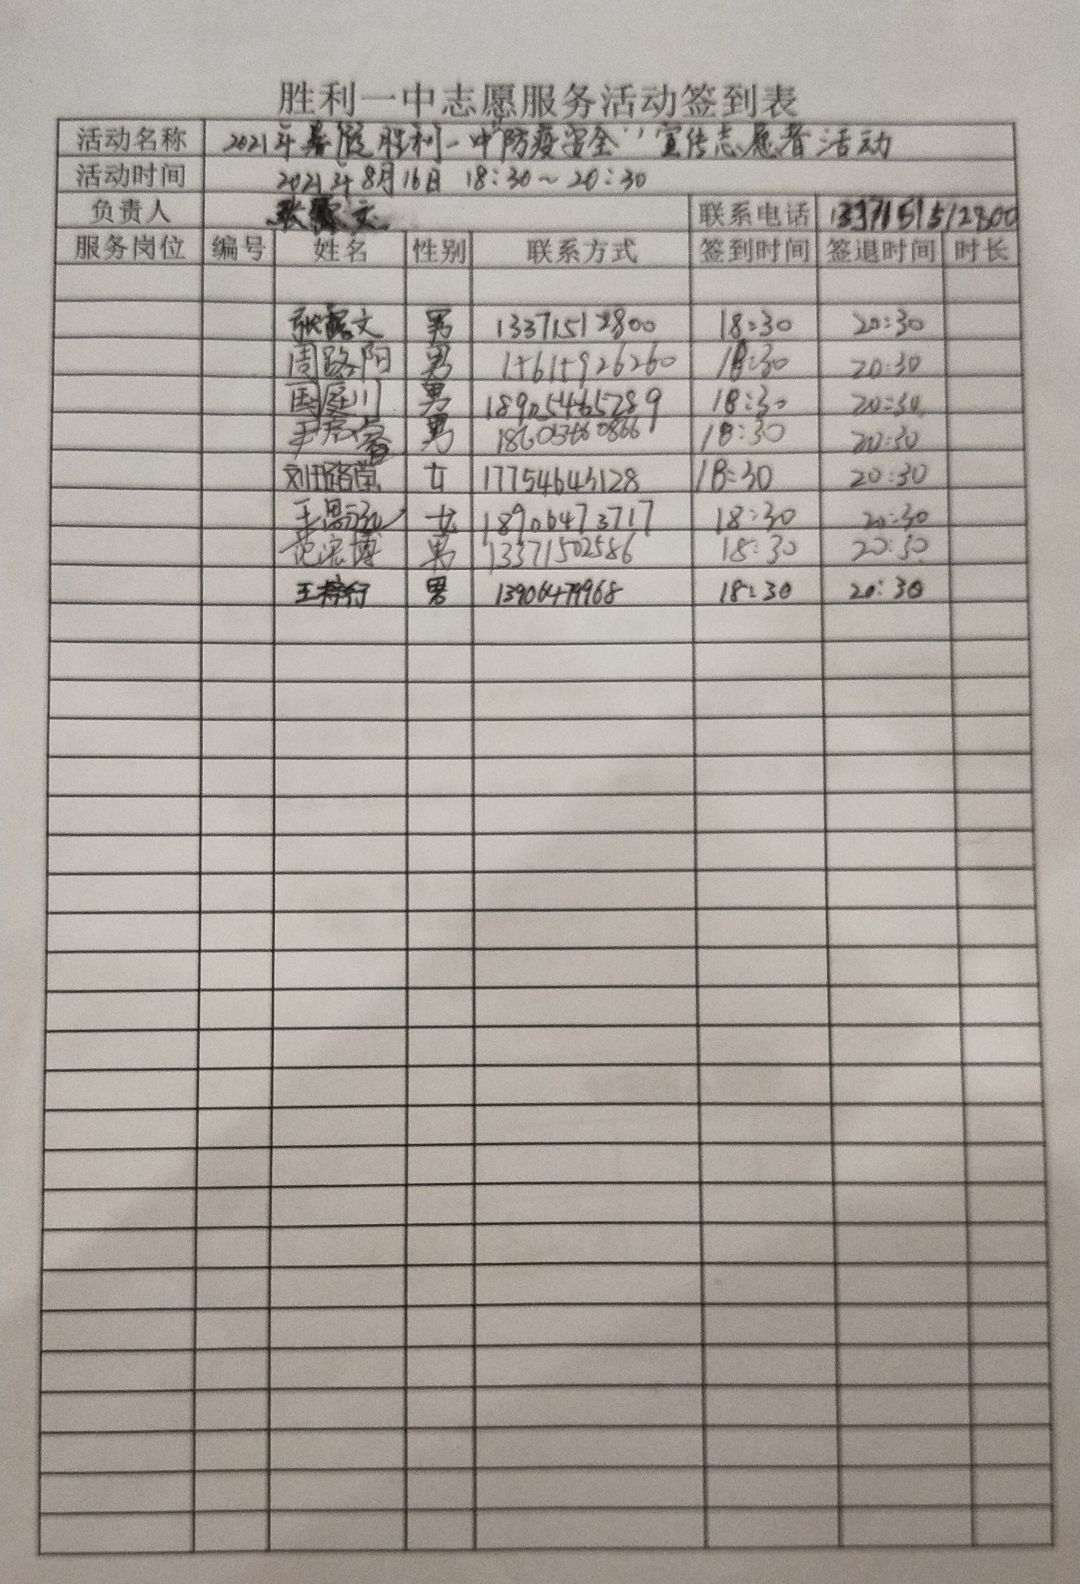 胜利一中志愿服务活动签到表
活动名称 2021年暑假胜利一中“防疫安全”宣传志愿者活动
活动时间 2021年8月16日 18:30～20:30
负责人 文 联系电话
服务岗位 编号 姓名 性别 联系方式 签到时间 签退时间 时长
文 男 13371512800 18:30 20:30
周路阳 男 18:30 20:30
国庭川 男 18905465289 18:30 20:30
男 18:30 20:30
女 17754643128 18:30 20:30
女 18906473717 18:30 20:30
男 13371502586 18:30 20:30
王梓行 男 18:30 20:30